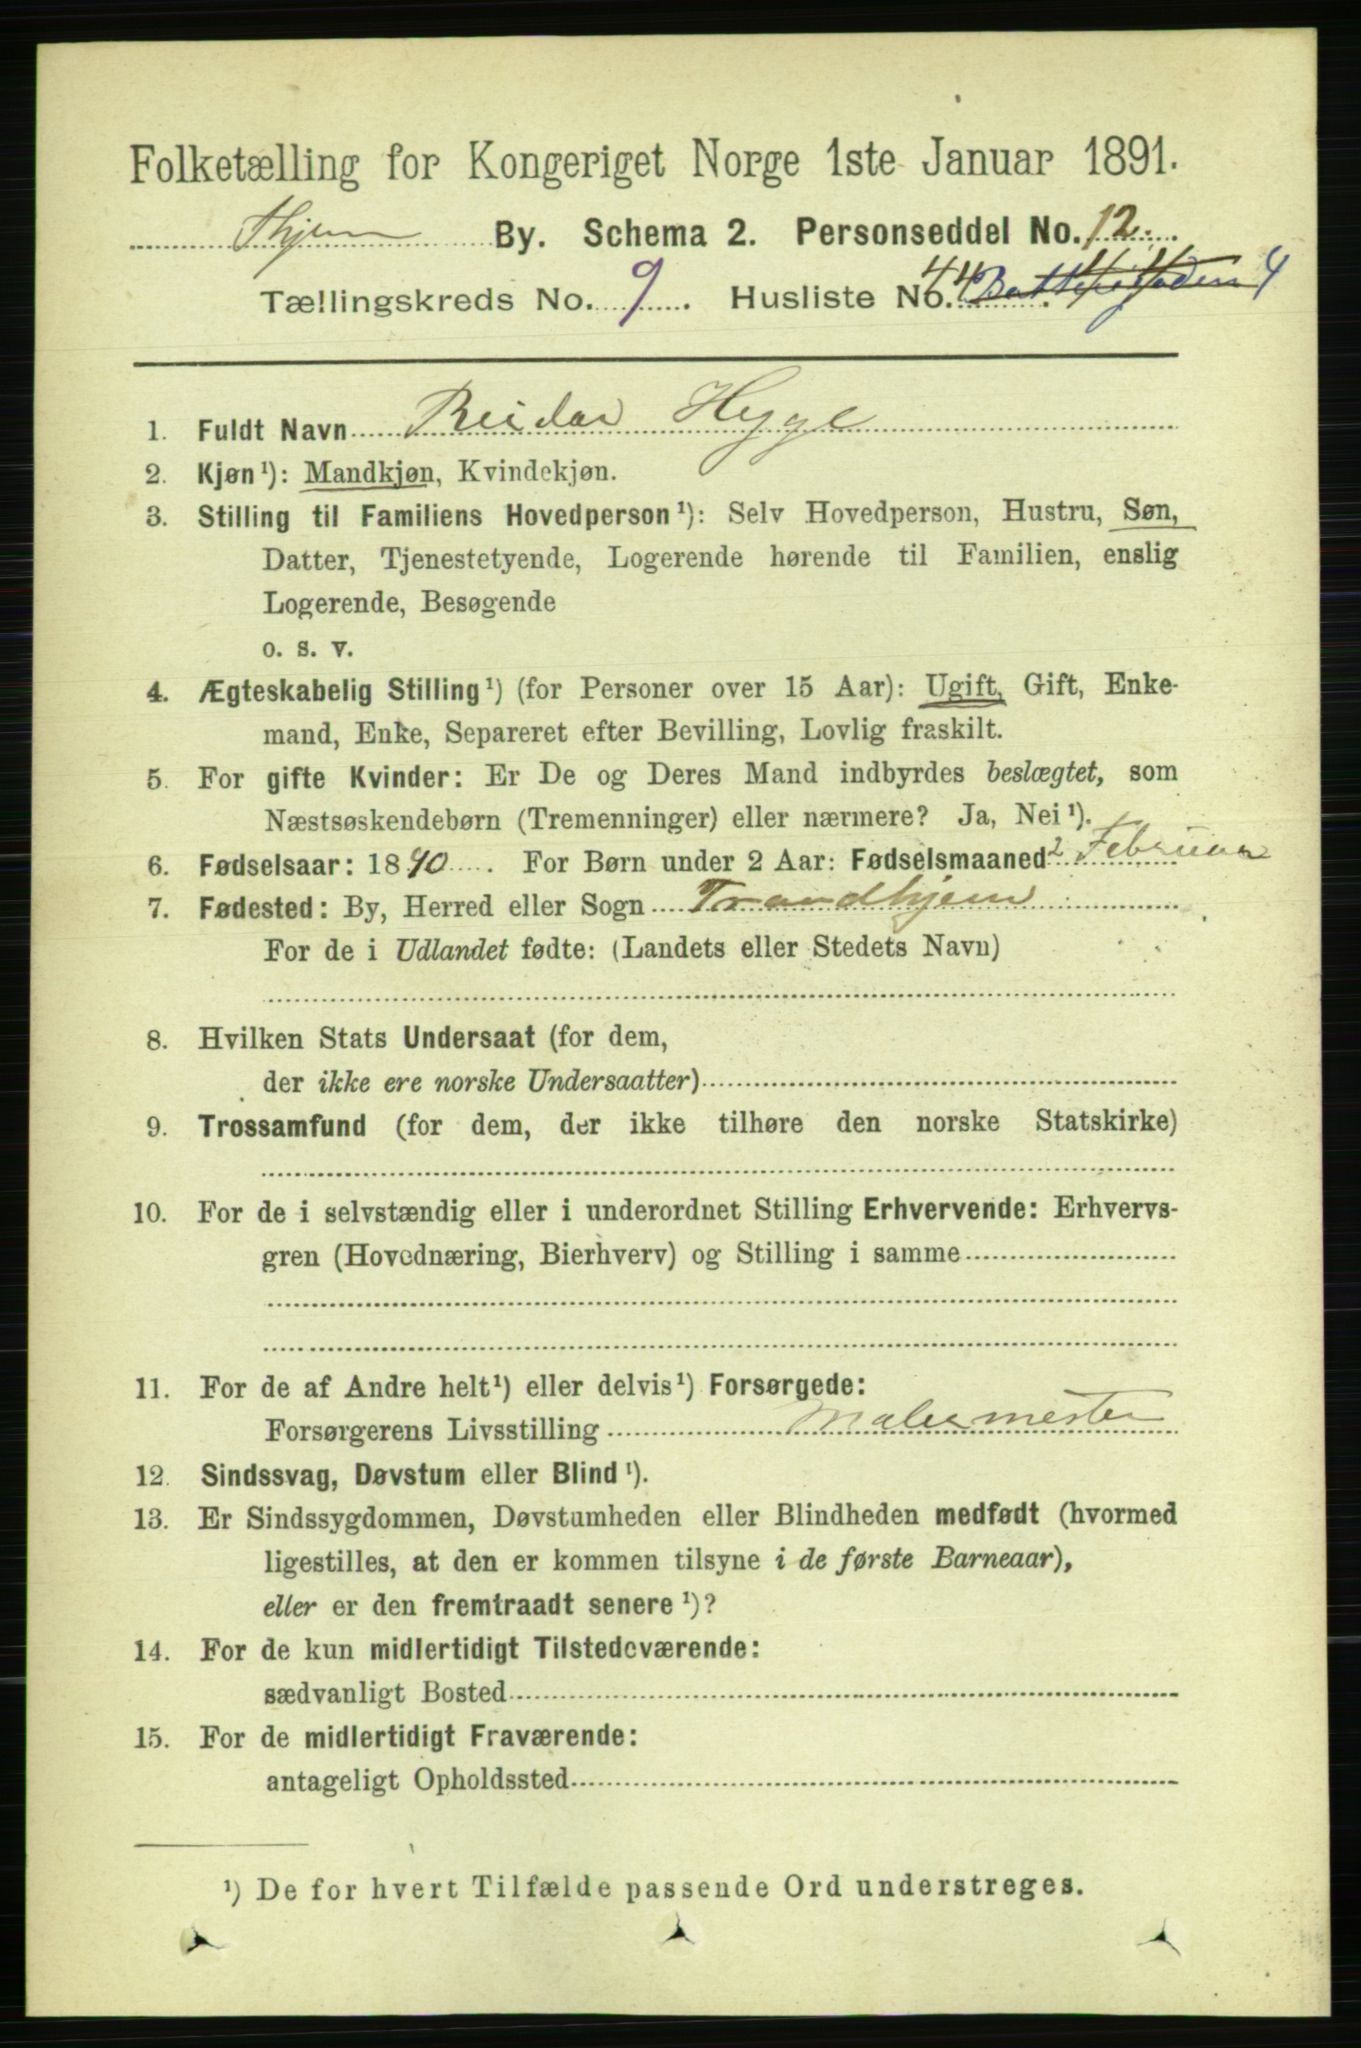 Folketælling for Kongeriget Norge 1ste Januar 1891.
Thjem By. Schema 2. Personseddel No. 12.
Tællingskreds No. 9. Husliste No. 44 4
1. Fuldt Navn Reidar Hygl
2. Kjøn ¹): Mandkjøn, Kvindekjøn.
3. Stilling til Familiens Hovedperson ¹): Selv Hovedperson, Hustru, Søn,
Datter, Tjenestetyende, Logerende hørende til Familien, enslig
Logerende, Besøgende
o. s. v.
4. Ægteskabelig Stilling ¹) (for Personer over 15 Aar): Ugift, Gift, Enke-
mand, Enke, Separeret efter Bevilling, Lovlig fraskilt.
5. For gifte Kvinder: Er De og Deres Mand indbyrdes beslægtet, som
Næstsøskendebørn (Tremenninger) eller nærmere? Ja, Nei ¹).
6. Fødselsaar: 1890. For Børn under 2 Aar: Fødselsmaaned 2 Februar
7. Fødested: By, Herred eller Sogn Trondhjem
For de i Udlandet fødte: (Landets eller Stedets Navn)
8. Hvilken Stats Undersaat (for dem,
der ikke ere norske Undersaatter)
9. Trossamfund (for dem, der ikke tilhøre den norske Statskirke)
10. For de i selvstændig eller i underordnet Stilling Erhvervende: Erhvervs-
gren (Hovednæring, Bierhverv) og Stilling i samme
11. For de af Andre helt ¹) eller delvis ¹) Forsørgede:
Forsørgerens Livsstilling Malermester
12. Sindssvag, Døvstum eller Blind ¹).
13. Er Sindssygdommen, Døvstumheden eller Blindheden medfødt (hvormed
ligestilles, at den er kommen tilsyne i de første Barneaar),
eller er den fremtraadt senere ¹)?
14. For de kun midlertidigt Tilstedeværende:
sædvanligt Bosted
15. For de midlertidigt Fraværende:
antageligt Opholdssted
¹) De for hvert Tilfælde passende Ord understreges.